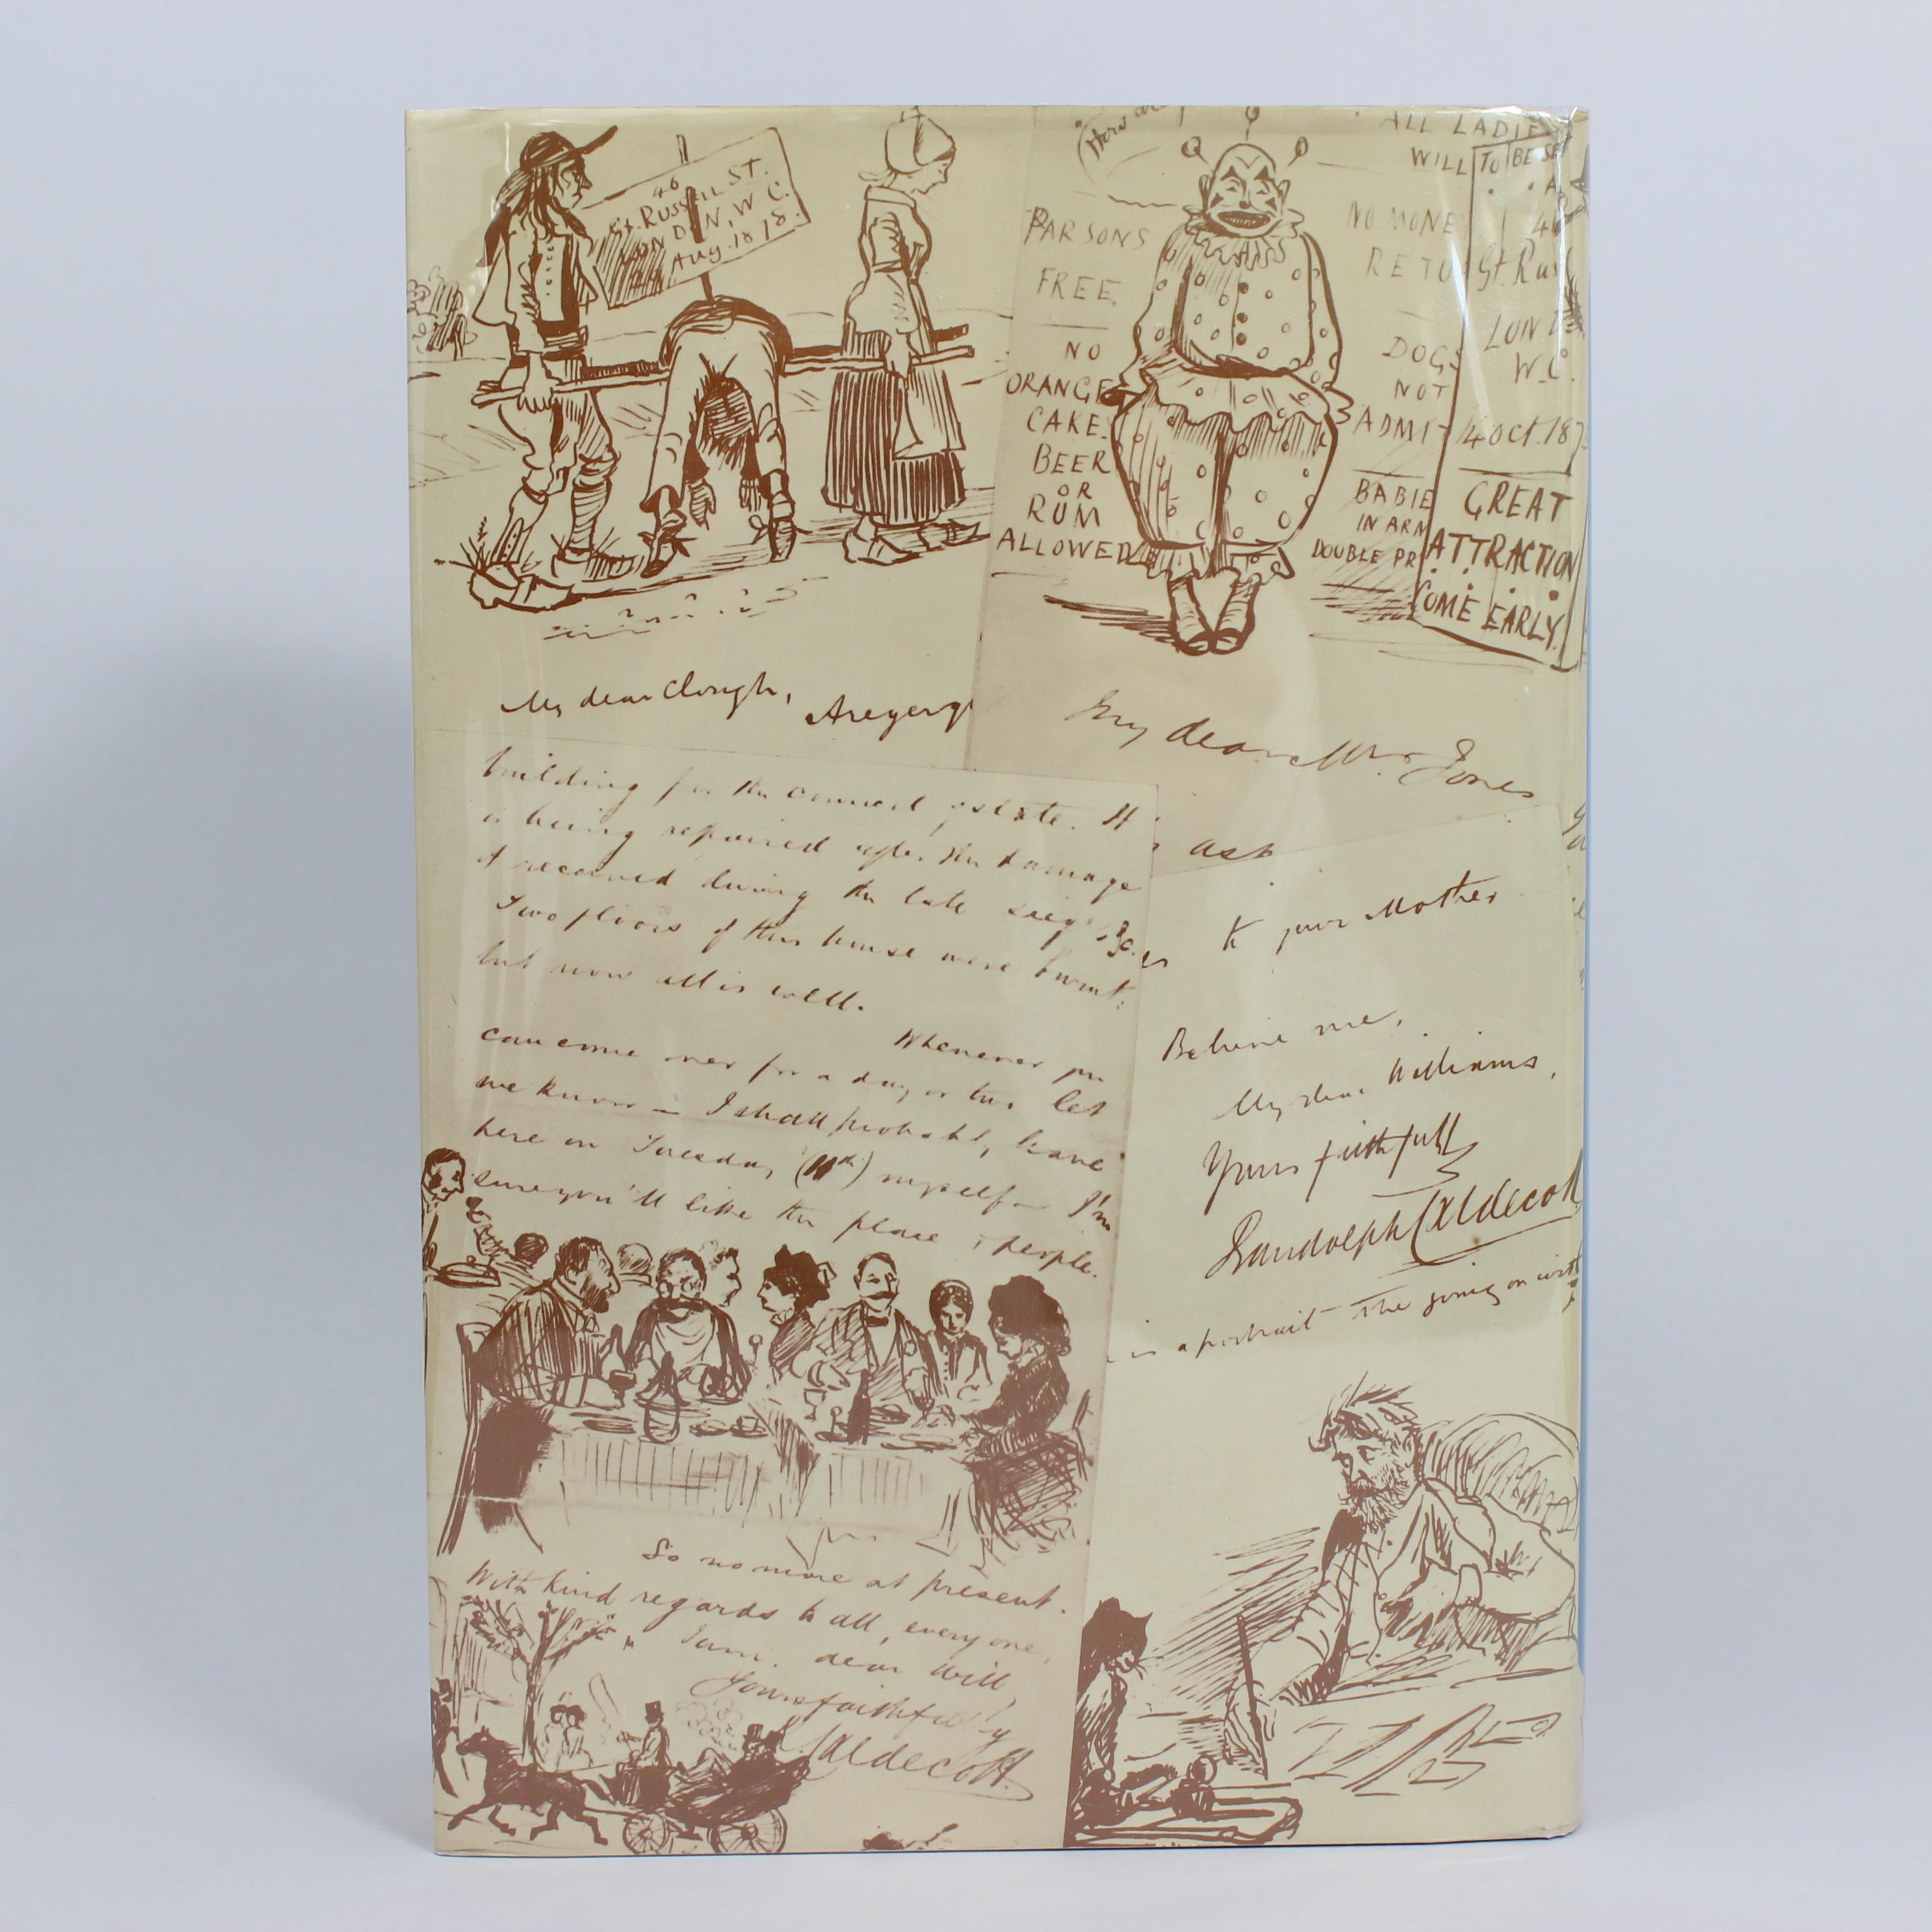 46
Gt. Russell St.
London, W C.
Aug. 18 78.
My dear Clough,
How
PARSONS
FREE.
NO
ORANGE
CAKE.
BEER
OR
RUM
ALLOWED
ALL LADIE
WILL TO BE SE
NO MONE
RETU
DOGS
NOT
ADMIT
BABIE
IN ARM
DOUBLE PR
46
Gt. Russ
LOND
W.C.
4 Oct. 187
GREAT
ATTRACTION
COME EARLY.
My dear Mr. Jones
ask
building for the council of state. It
is being repaired after the damage
it received during the late siege &c.
Two floors of this house were burnt:
but now all is well.
Whenever you
can come over for a day or two let
me know – I shall probably leave
here on Tuesday (11th) myself – I'm
sure you'll like the place & people.
to your Mother
Believe me,
My dear Williams,
Yours faithfully
Randolph Caldecott
is a portrait the going on with
So no more at present.
With kind regards to all, every one,
I am, dear Will,
Yours faithfully
R. Caldecott.